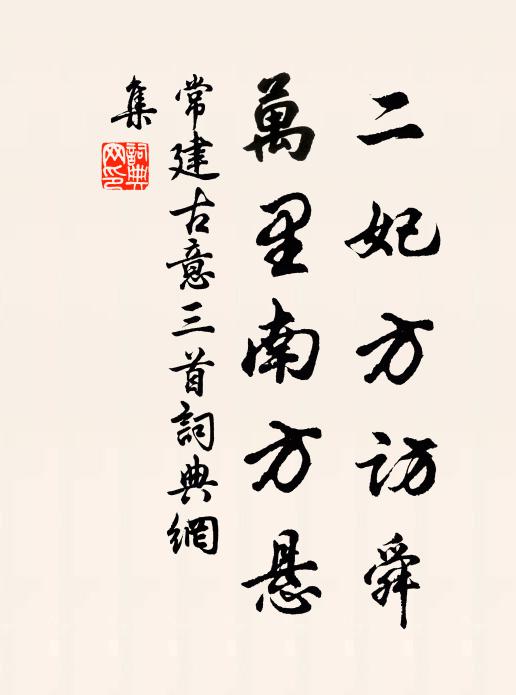 二妃方访舜
萬里南方悬
常建古意三首詞典網
集
詞典
网印